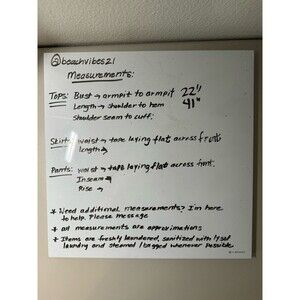 @beachvibes21
Measurements:
Tops: Bust → armpit to armpit 22"
Length → shoulder to hem 41"
Shoulder seam to cuff:
Skirts: waist → tape laying flat across front:
Length →
Pants: waist → tape laying flat across front:
Inseam →
Rise →
* Need additional measurements? I'm here
to help. Please message
* all measurements are approximations
* Items are freshly laundered, sanitized with lysol
laundry and steamed / bagged whenever possible